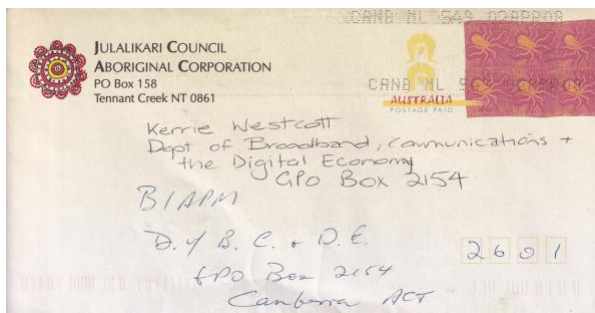 CANB ML 549 02APR08
JULALIKARI COUNCIL
ABORIGINAL CORPORATION
PO Box 158
Tennant Creek NT 0861
CANB ML 549 02APR08
AUSTRALIA
POSTAGE PAID
Kerrie Westcott
Dept of Broadband, Communications +
the Digital Economy
GPO Box 2154
BIAPM
D. of B. C. + D. E.
GPO Box 2154
2601
Canberra ACT